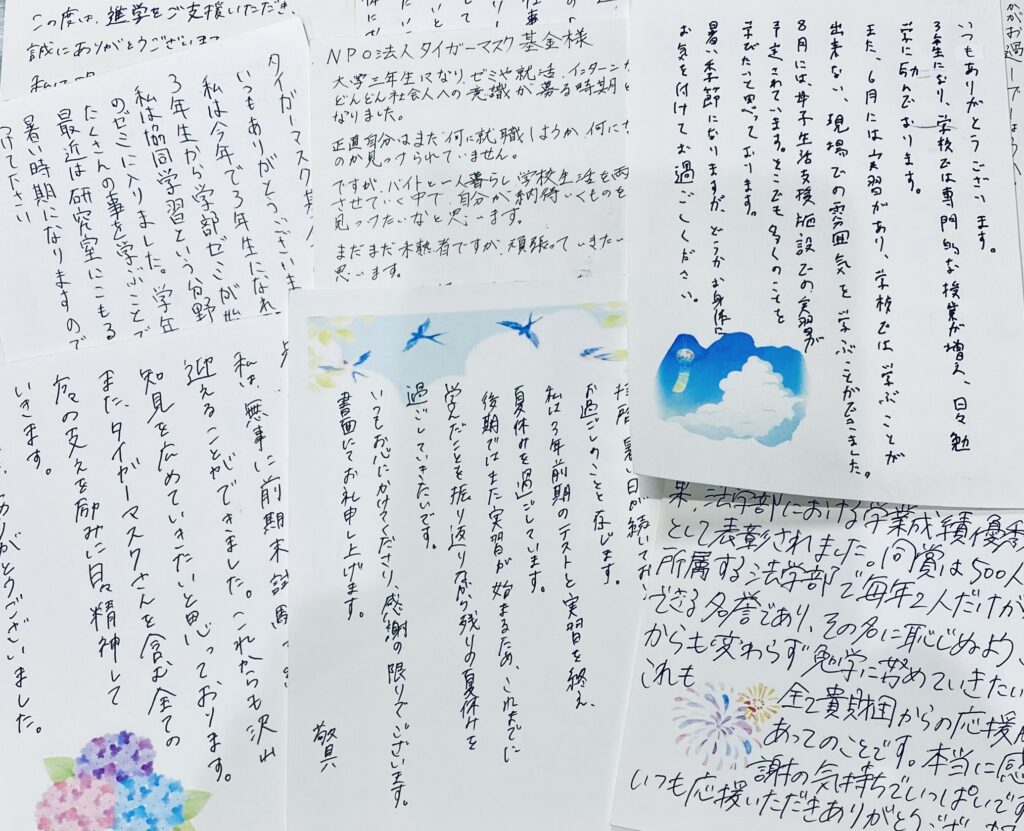 この度は、進学をご支援いただき、
誠にありがとうございます
タイガーマスク基
いつもありがとうございま
私は今年で3年生になれ
3年生から学部ゼミが
私は協同学習という分野
のゼミに入りました。学年
たくさんの事を学ぶことで
最近は研究室にこもる
暑い時期になりますので
つけて下さい
NPO法人タイガーマスク基金様
大学三年生になり、ゼミや就活、インターンが
どんどん社会人への意識が募る時期と
なりました。
正直自分はまだ何に就職しようか、何に
のか見つけられていません。
ですが、バイトと一人暮らし、学校生活を両
させていく中で、自分が納得いくものを
見つけたいなと思います。
まだまだ未熟者ですが、頑張っていきたい
思います。
いつもありがとうございます。
3年生になり、学校では専門的な授業が増え、日々勉
学に励んでおります。
また、6月には実習があり、学校では学ぶことが
出来ない、現場での雰囲気を学ぶことができました。
8月には、母子生活支援施設での実習が
予定されています。そこでも多くのことを
学びたいと思っております。
暑い季節になりますが、どうかお身体に
お気を付けてお過ごしください。
私は、無事に前期末試験
迎えることができました。これからも沢山
知見を広めていきたいと思っております。
また、タイガーマスクさんを含む全ての
方々の支えを励みに日々精神して
いきます。
ありがとうございました。
暑い日が続いてお
お過ごしのことと存じます。
私は3年前期のテストと実習を終え、
夏休みを過ごしています。
後期ではまた実習が始まるため、これまでに
学んだことを振り返りながら残りの夏休みを
過ごしていきたいです。
いつもお心にかけてくださり、感謝の限りでございます。
書面にてお礼申し上げます。
敬具
果、法学部における学業成績優秀
として表彰されました。同賞は500人
所属する法学部で毎年2人だけが
できる名誉であり、その名に恥じぬよう、
からも変わらず勉学に努めていきたい
これも
全て貴財団からの応援
あってのことです。本当に感
謝の気持ちでいっぱいです
いつも応援いただきありがとうござ